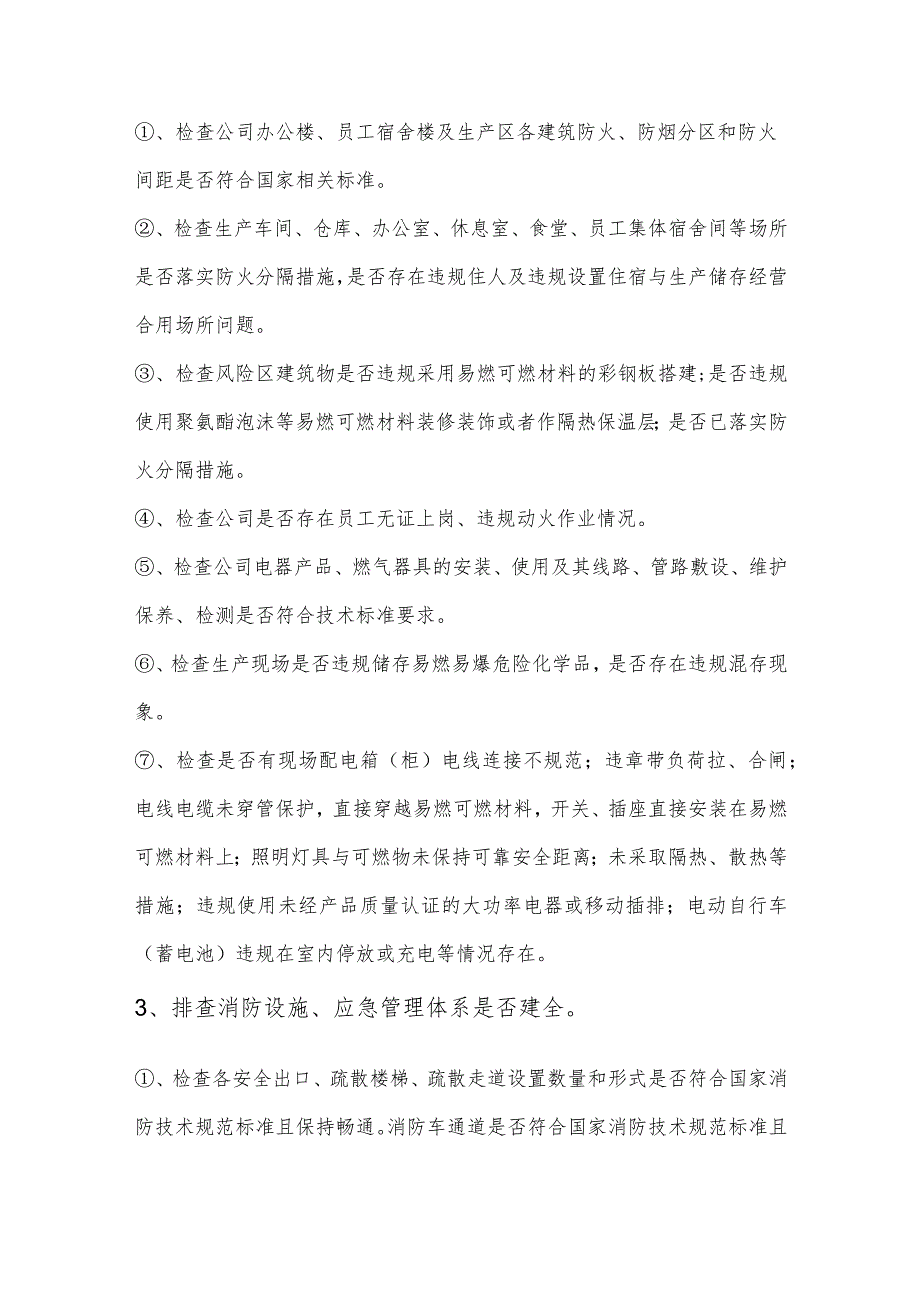 ①、检查公司办公楼、员工宿舍楼及生产区各建筑防火、防烟分区和防火
间距是否符合国家相关标准。
②、检查生产车间、仓库、办公室、休息室、食堂、员工集体宿舍间等场所
是否落实防火分隔措施，是否存在违规住人及违规设置住宿与生产储存经营
合用场所问题。
③、检查风险区建筑物是否违规采用易燃可燃材料的彩钢板搭建;是否违规
使用聚氨酯泡沫等易燃可燃材料装修装饰或者作隔热保温层；是否已落实防
火分隔措施。
④、检查公司是否存在员工无证上岗、违规动火作业情况。
⑤、检查公司电器产品、燃气器具的安装、使用及其线路、管路敷设、维护
保养、检测是否符合技术标准要求。
⑥、检查生产现场是否违规储存易燃易爆危险化学品，是否存在违规混存现
象。
⑦、检查是否有现场配电箱（柜）电线连接不规范；违章带负荷拉、合闸；
电线电缆未穿管保护，直接穿越易燃可燃材料，开关、插座直接安装在易燃
可燃材料上；照明灯具与可燃物未保持可靠安全距离；未采取隔热、散热等
措施；违规使用未经产品质量认证的大功率电器或移动插排；电动自行车
（蓄电池）违规在室内停放或充电等情况存在。
3、排查消防设施、应急管理体系是否建全。
①、检查各安全出口、疏散楼梯、疏散走道设置数量和形式是否符合国家消
防技术规范标准且保持畅通。消防车通道是否符合国家消防技术规范标准且